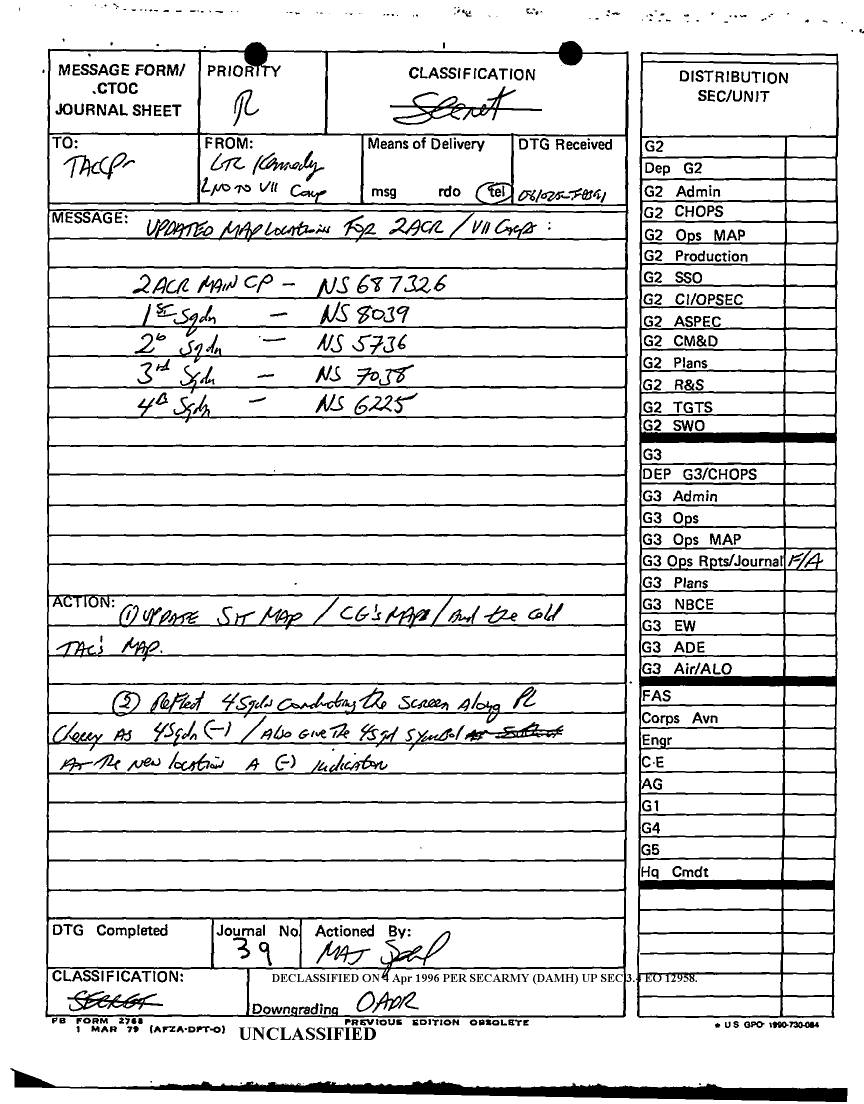 MESSAGE FORM/ PRIORITY CLASSIFICATION
.CTOC R Secret
JOURNAL SHEET
TO: FROM: Means of Delivery DTG Received
TACCP LTC Kennedy
LNO TO VII Corp msg rdo tel
MESSAGE: UPDATED MAP Locations FOR 2ACR / VII Corps :
2ACR MAIN CP - NS 687326
1st Sqdn - NS 8039
2d Sqdn - NS 5736
3rd Sqdn - NS 7038
4th Sqdn - NS 6225
ACTION: (1) UPDATE SIT MAP / CG's MAP / And the Cold
TAC's MAP.
(2) Reflect 4Sqdn Conducting the Screen Along PL
Cherry AS 4Sqdn (-) / Also Give The 4Sqd Symbol
At The New location A (-) indicator
DTG Completed Journal No. Actioned By:
39 MAJ
CLASSIFICATION: DECLASSIFIED ON 4 Apr 1996 PER SECARMY (DAMH) UP SEC 3.4 EO 12958.
SECRET Downgrading OADR
FB FORM 2768 PREVIOUS EDITION OBSOLETE
1 MAR 79 (AFZA-DPT-O) UNCLASSIFIED
DISTRIBUTION
SEC/UNIT
G2
Dep G2
G2 Admin
G2 CHOPS
G2 Ops MAP
G2 Production
G2 SSO
G2 CI/OPSEC
G2 ASPEC
G2 CM&D
G2 Plans
G2 R&S
G2 TGTS
G2 SWO
G3
DEP G3/CHOPS
G3 Admin
G3 Ops
G3 Ops MAP
G3 Ops Rpts/Journal F/A
G3 Plans
G3 NBCE
G3 EW
G3 ADE
G3 Air/ALO
FAS
Corps Avn
Engr
C-E
AG
G1
G4
G5
Hq Cmdt
* U S GPO: 1990-730-084